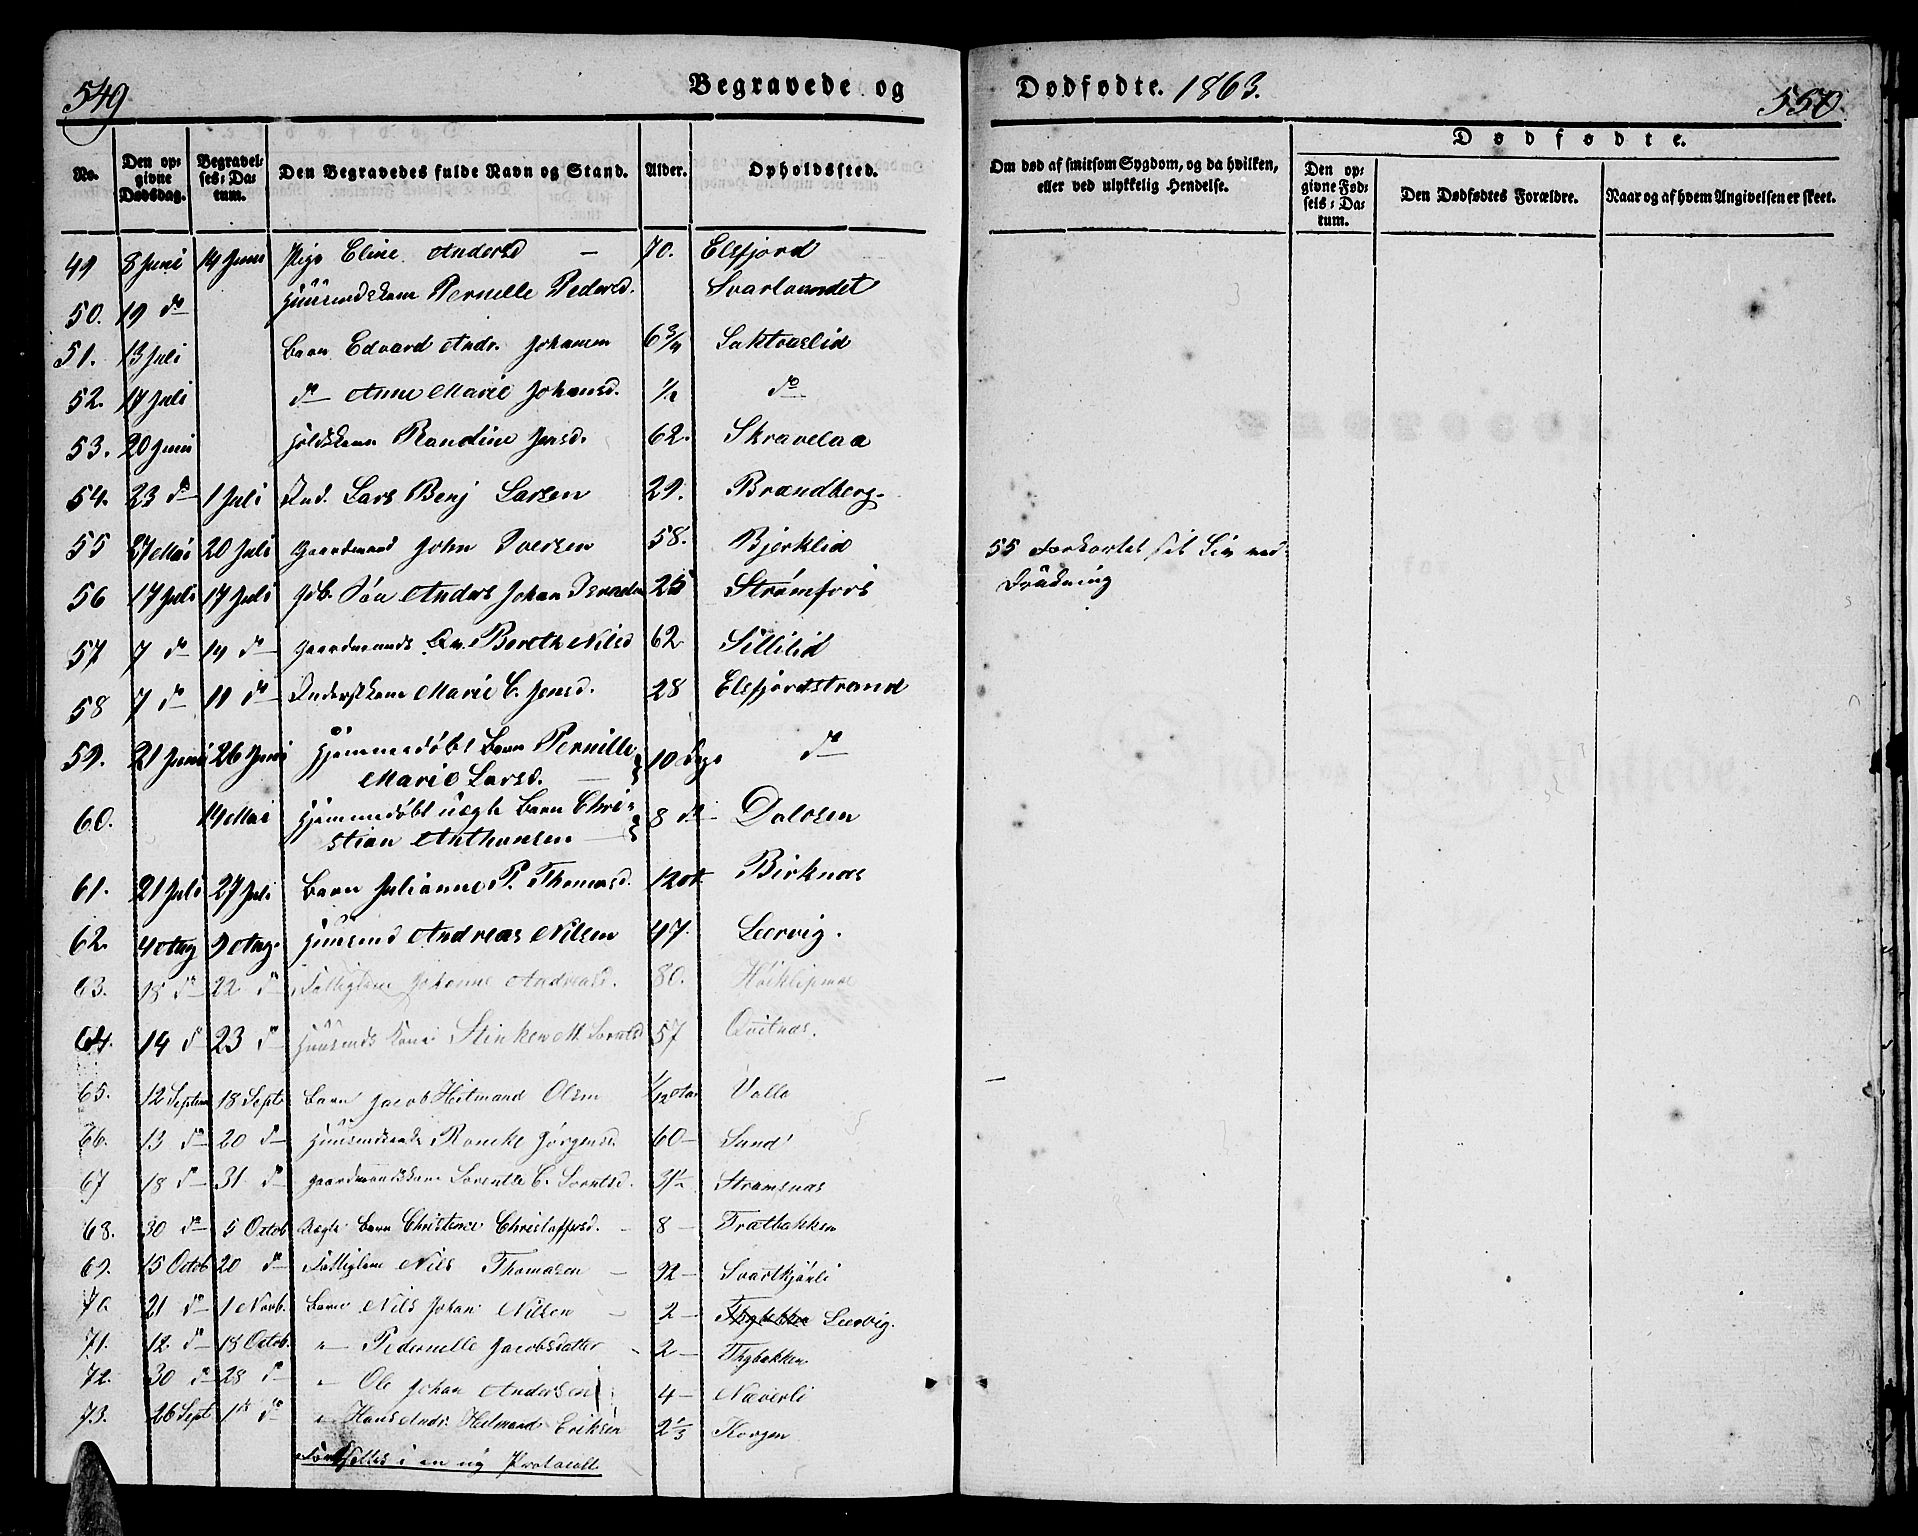 549
Begravede og
Dødfødte. 1863.
550.
No.
Den opgivne Dødsdag.
Begravelses-Datum.
Den Begravedes fulde Navn og Stand.
Alder.
Opholdssted.
Om død af smitsom Sygdom, og da hvilken, eller ved ulykkelig Hendelse.
Dødfødte.
Den opgivne Fødsels-Datum.
Den Dødfødtes Forældre.
Naar og af hvem Angivelsen er skeet.
49 8 Juni 14 Juni Pige Eline Andersd — 70. Elsfjord
50. 19 do Huusmdskone Pernille Pedersd. Svartvandet
51. 13 Juli Barn Edvard Andr. Johansen 6 3/4 Saktvaslid
52. 17 Juli do Anne Marie Johansd. 1/2 do
53. 20 Juni Holdskone Randine Jensd. 62. Skravelaa
54. 23 do 1 Juli Ind. Lars Benj Larsen 29. Brandberg
55 27 Mai 20 Juli Gaardmand John Iversen 58. Bjerklid
55 Forkortet sit Liv ved
Drukning
56 17 Juli 17 Juli Gdb. Søn Anders Johan 25 Strømfors
57 7 do 14 do Gaardmands Berethe Nilsd 62 Sillilid
58 7 do 11 do Inderstkone Marie C. Jensd. 28 Elsfjordstrand
59. 21 Juni 26 Juni Hjemmedøbt Barn Pernille
Marie Larsd. — 10 Dage do
60. 14 Mai Hjemmedøbt uægte Barn Chri-
stian Anthonsen — 8 do Dalosen
61. 21 Juli 27 Juli Barn Julianne P. Thomasd. 12 Birknes
62. 4 Aug 9 Aug. Huusmd Andreas Nilsen 47. Leervig.
63. 18 do 22 do Fattiglem Johanne Andreasd. 80.
64. 14 do 23 do Huusmds Kone Stinken M. 57 Qvitnæs.
65. 12 Septem 18 Septr Barn Jacob Heitmand Olsen 1/12 Valla
66. 13 do 20 do Roneke Jørgensd. 60 — Sund
67 18 do 31 do Gaardmandskone Sorentse C. Sorntsd. Strømsnæs
68. 30 do 5 Octob Uægte Barn Christence Christoffersd. 8 — Trætbakken
69. 15 Octob 20 do Fattiglem Nils Thomasen — 92 — Svartkjønli
70. 21 do 1 Novb. Barn Nils Johan Nilsen 2 — Leervig.
71. 12. do 18 Octob. " — Pedernelle Jacobsdatter 2 — Thybakken
72. 30 do 28 do " Ole Johan Andersen 4 — Næverli
73. 26 Sept 1ste do " Hans Andr. Heitmand Eriksen 2 1/3 Korgen
Fortsættes i en ny Protocoll